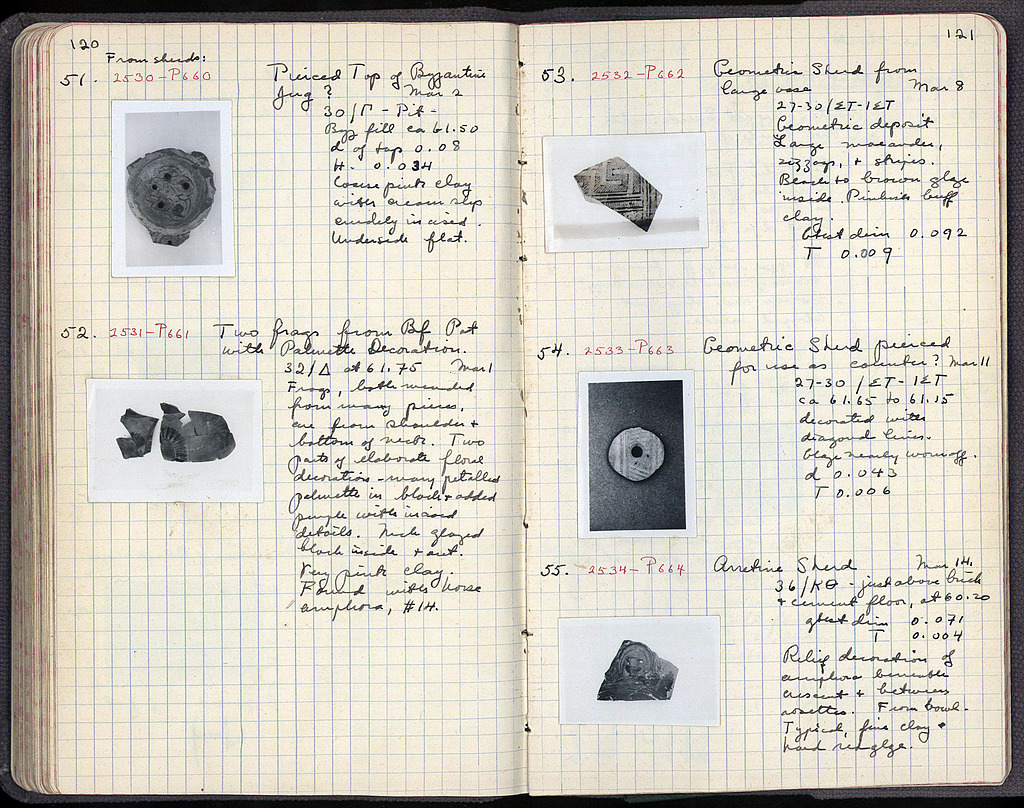 120
From sherds:
51. 2530-P660 Pierced Top of Byzantine
Jug ? Mar 2
30/Γ - Pit -
Byz fill ca 61.50
d of top 0.08
H. 0.034
Coarse pink clay
with cream slip
crudely incised.
Underside flat.
52. 2531-P661 Two frags from Bf Pot
with Palmette Decoration.
32/Δ at 61.75 Mar 1
Frags, both mended
from many pieces,
are from shoulder +
bottom of neck. Two
parts of elaborate floral
decoration - many petalled
palmette in black + added
purple with incised
details. Neck glazed
black inside + out.
Very pink clay.
Found with horse
amphora, #14.
121
53. 2532-P662 Geometric Sherd from
large vase Mar 8
27-30/ΣT-1ΣT
Geometric deposit
Large maeander,
zigzags, + stripes.
Black to brown glaze
inside. Pinkish buff
clay.
Gtest dim 0.092
T 0.009
54. 2533-P663 Geometric Sherd pierced
for use as counter? Mar 11
27-30 /ΣT-1ΣT
ca 61.65 to 61.15
decorated with
diagonal lines.
Glaze nearly worn off.
d 0.043
T 0.006
55. 2534-P664 Arretine Sherd Mar 14.
36/ΚΘ - just above brick
+ cement floor, at 60.20
gtest dim 0.071
T 0.004
Relief decoration of
amphora beneath
crescent + between
rosettes. From bowl.
Typical, fine clay +
hard red glze.